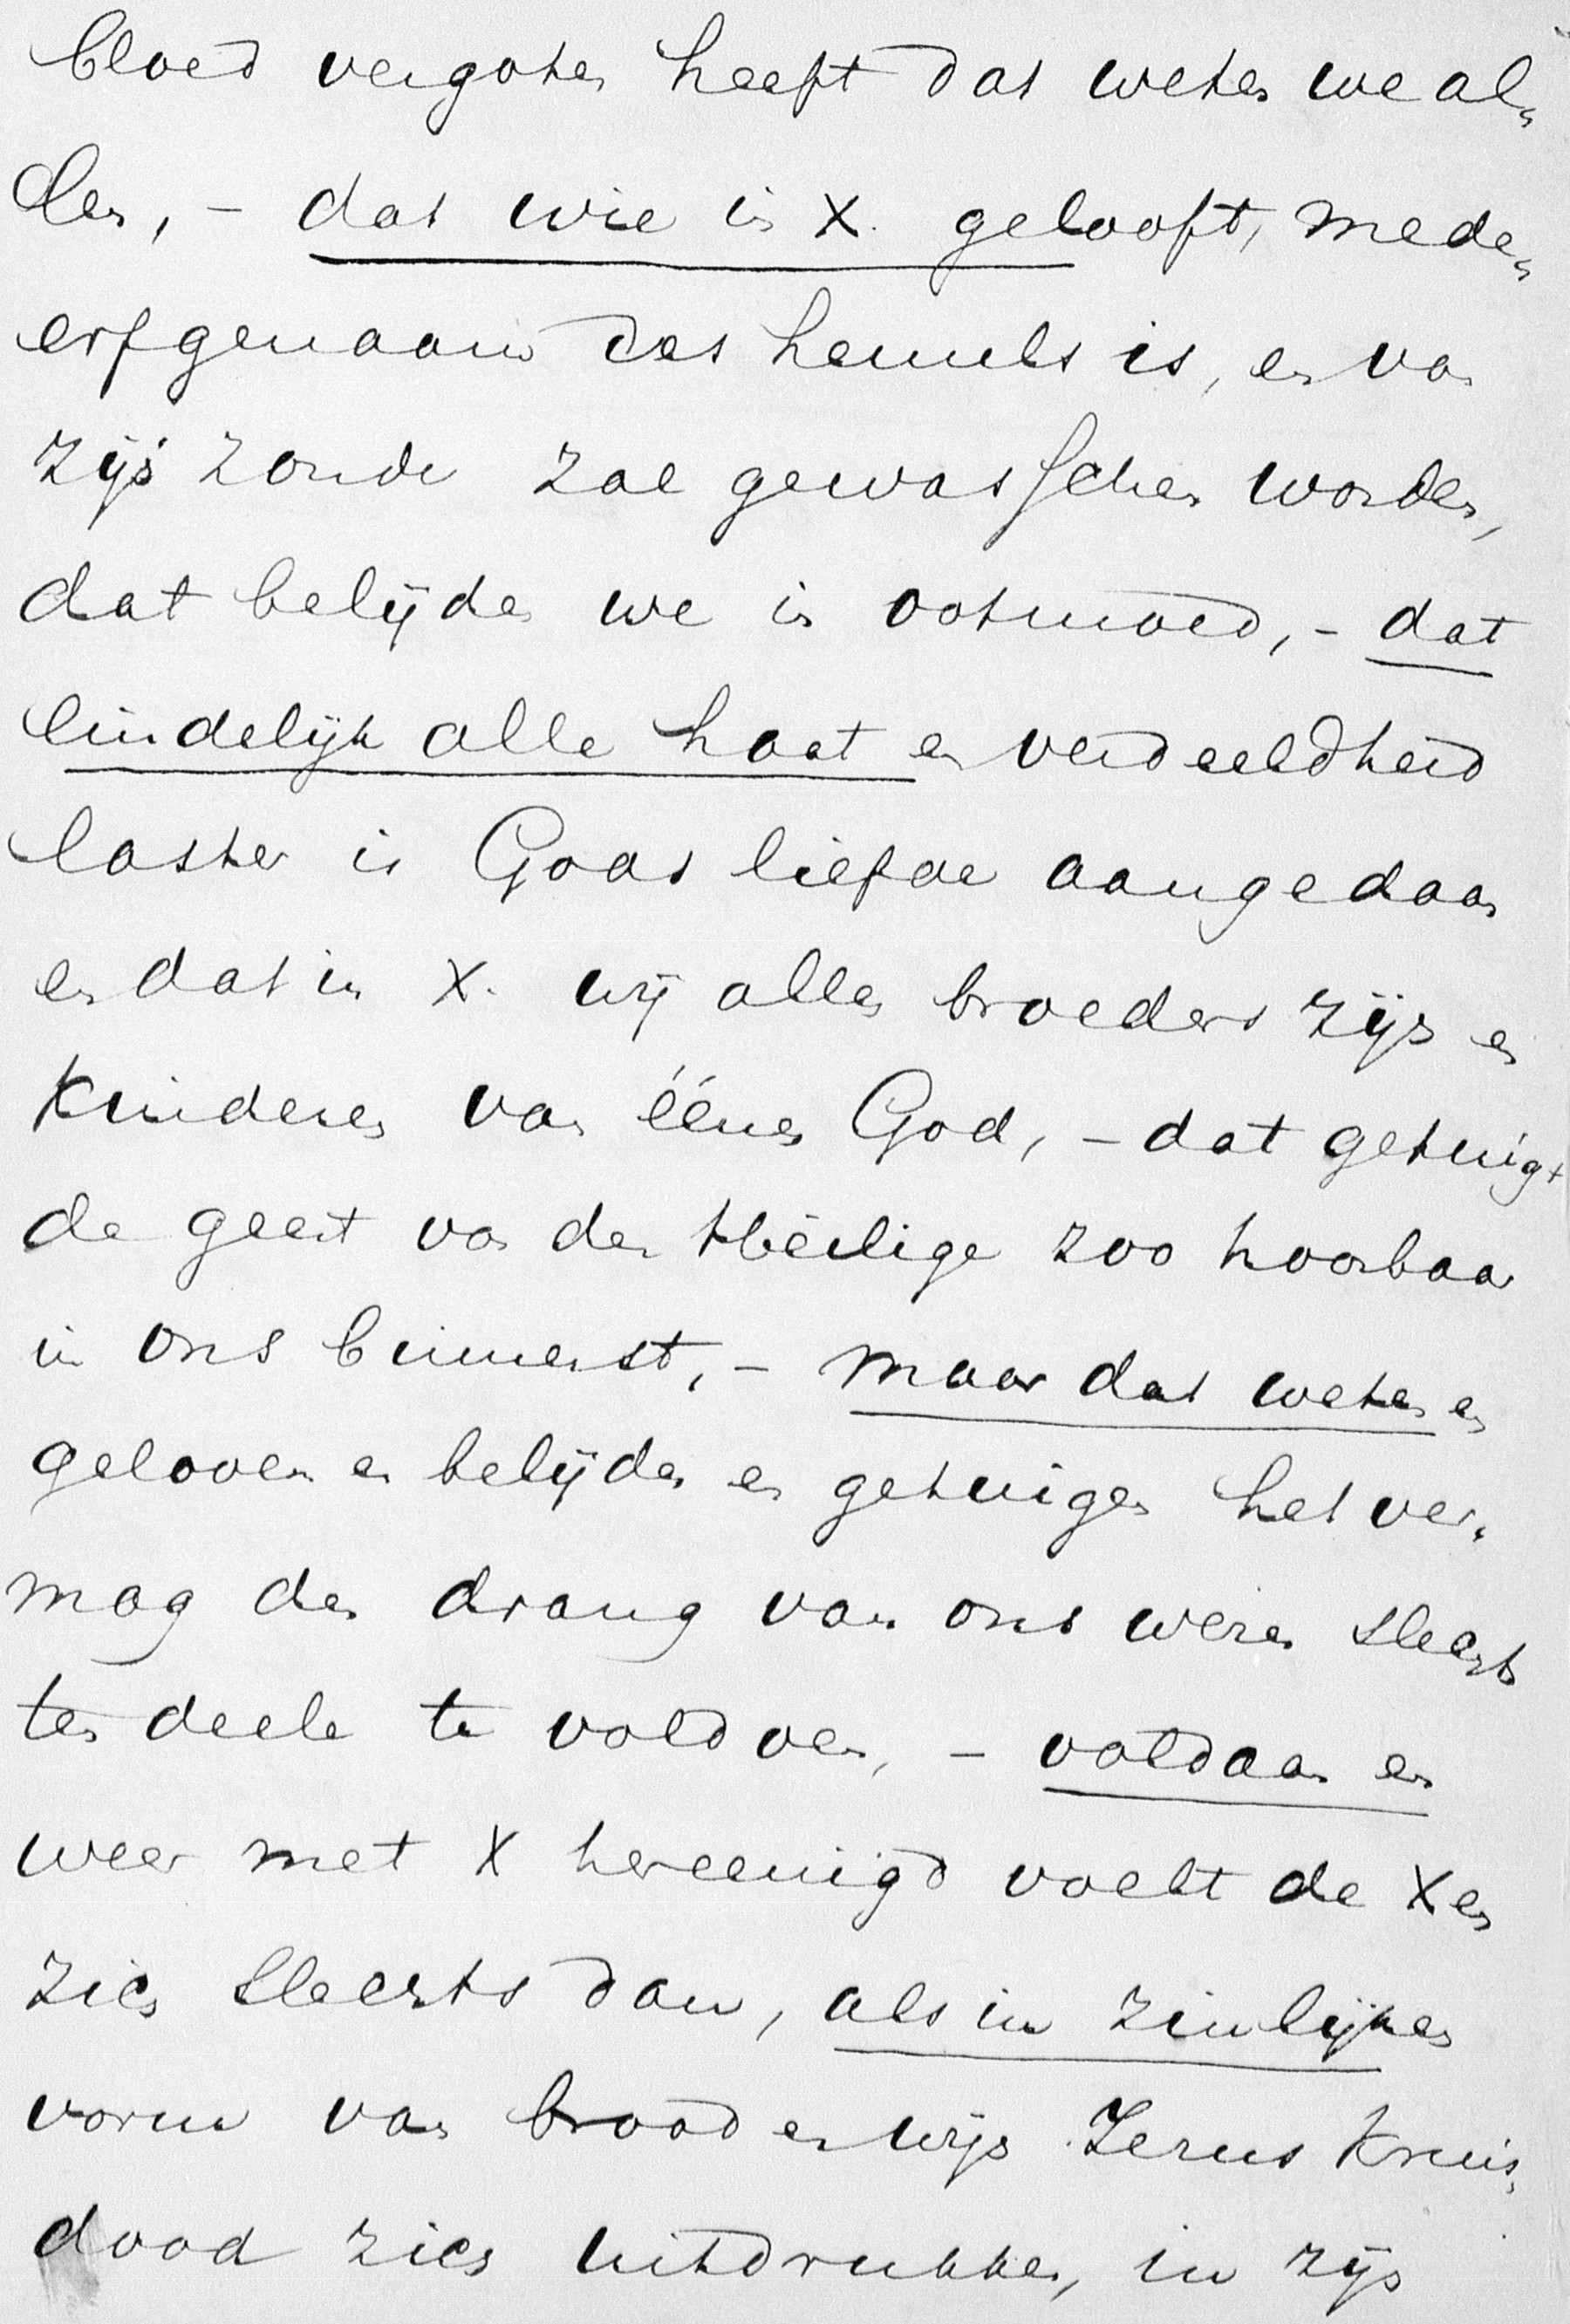 bloed vergoten heeft dat weten we al-
len, – dat wie in X. gelooft, mede-
erfgenaam des hemels is, en van
zijn zonde zal gewasschen worden,
dat belijden we in ootmoed, – dat
eindelijk alle haat en verdeeldheid
laster is Gods liefde aangedaan
en dat in X. wij allen broeders zijn en
kinderen van éénen God, – dat getuigt
de geest van den Heilige zoo hoorbaar
in ons binnenst, – maar dat weten en
gelooven en belijden en getuigen het ver-
mag den drang van ons wezen slechts
ten deele te voldoen, – voldaan en
weer met X hereenigd voelt de Xen
zich slechts dan, als in zinlijken
vorm van brood en wijn Jezus kruis-
dood zich uitdrukken, in zijn